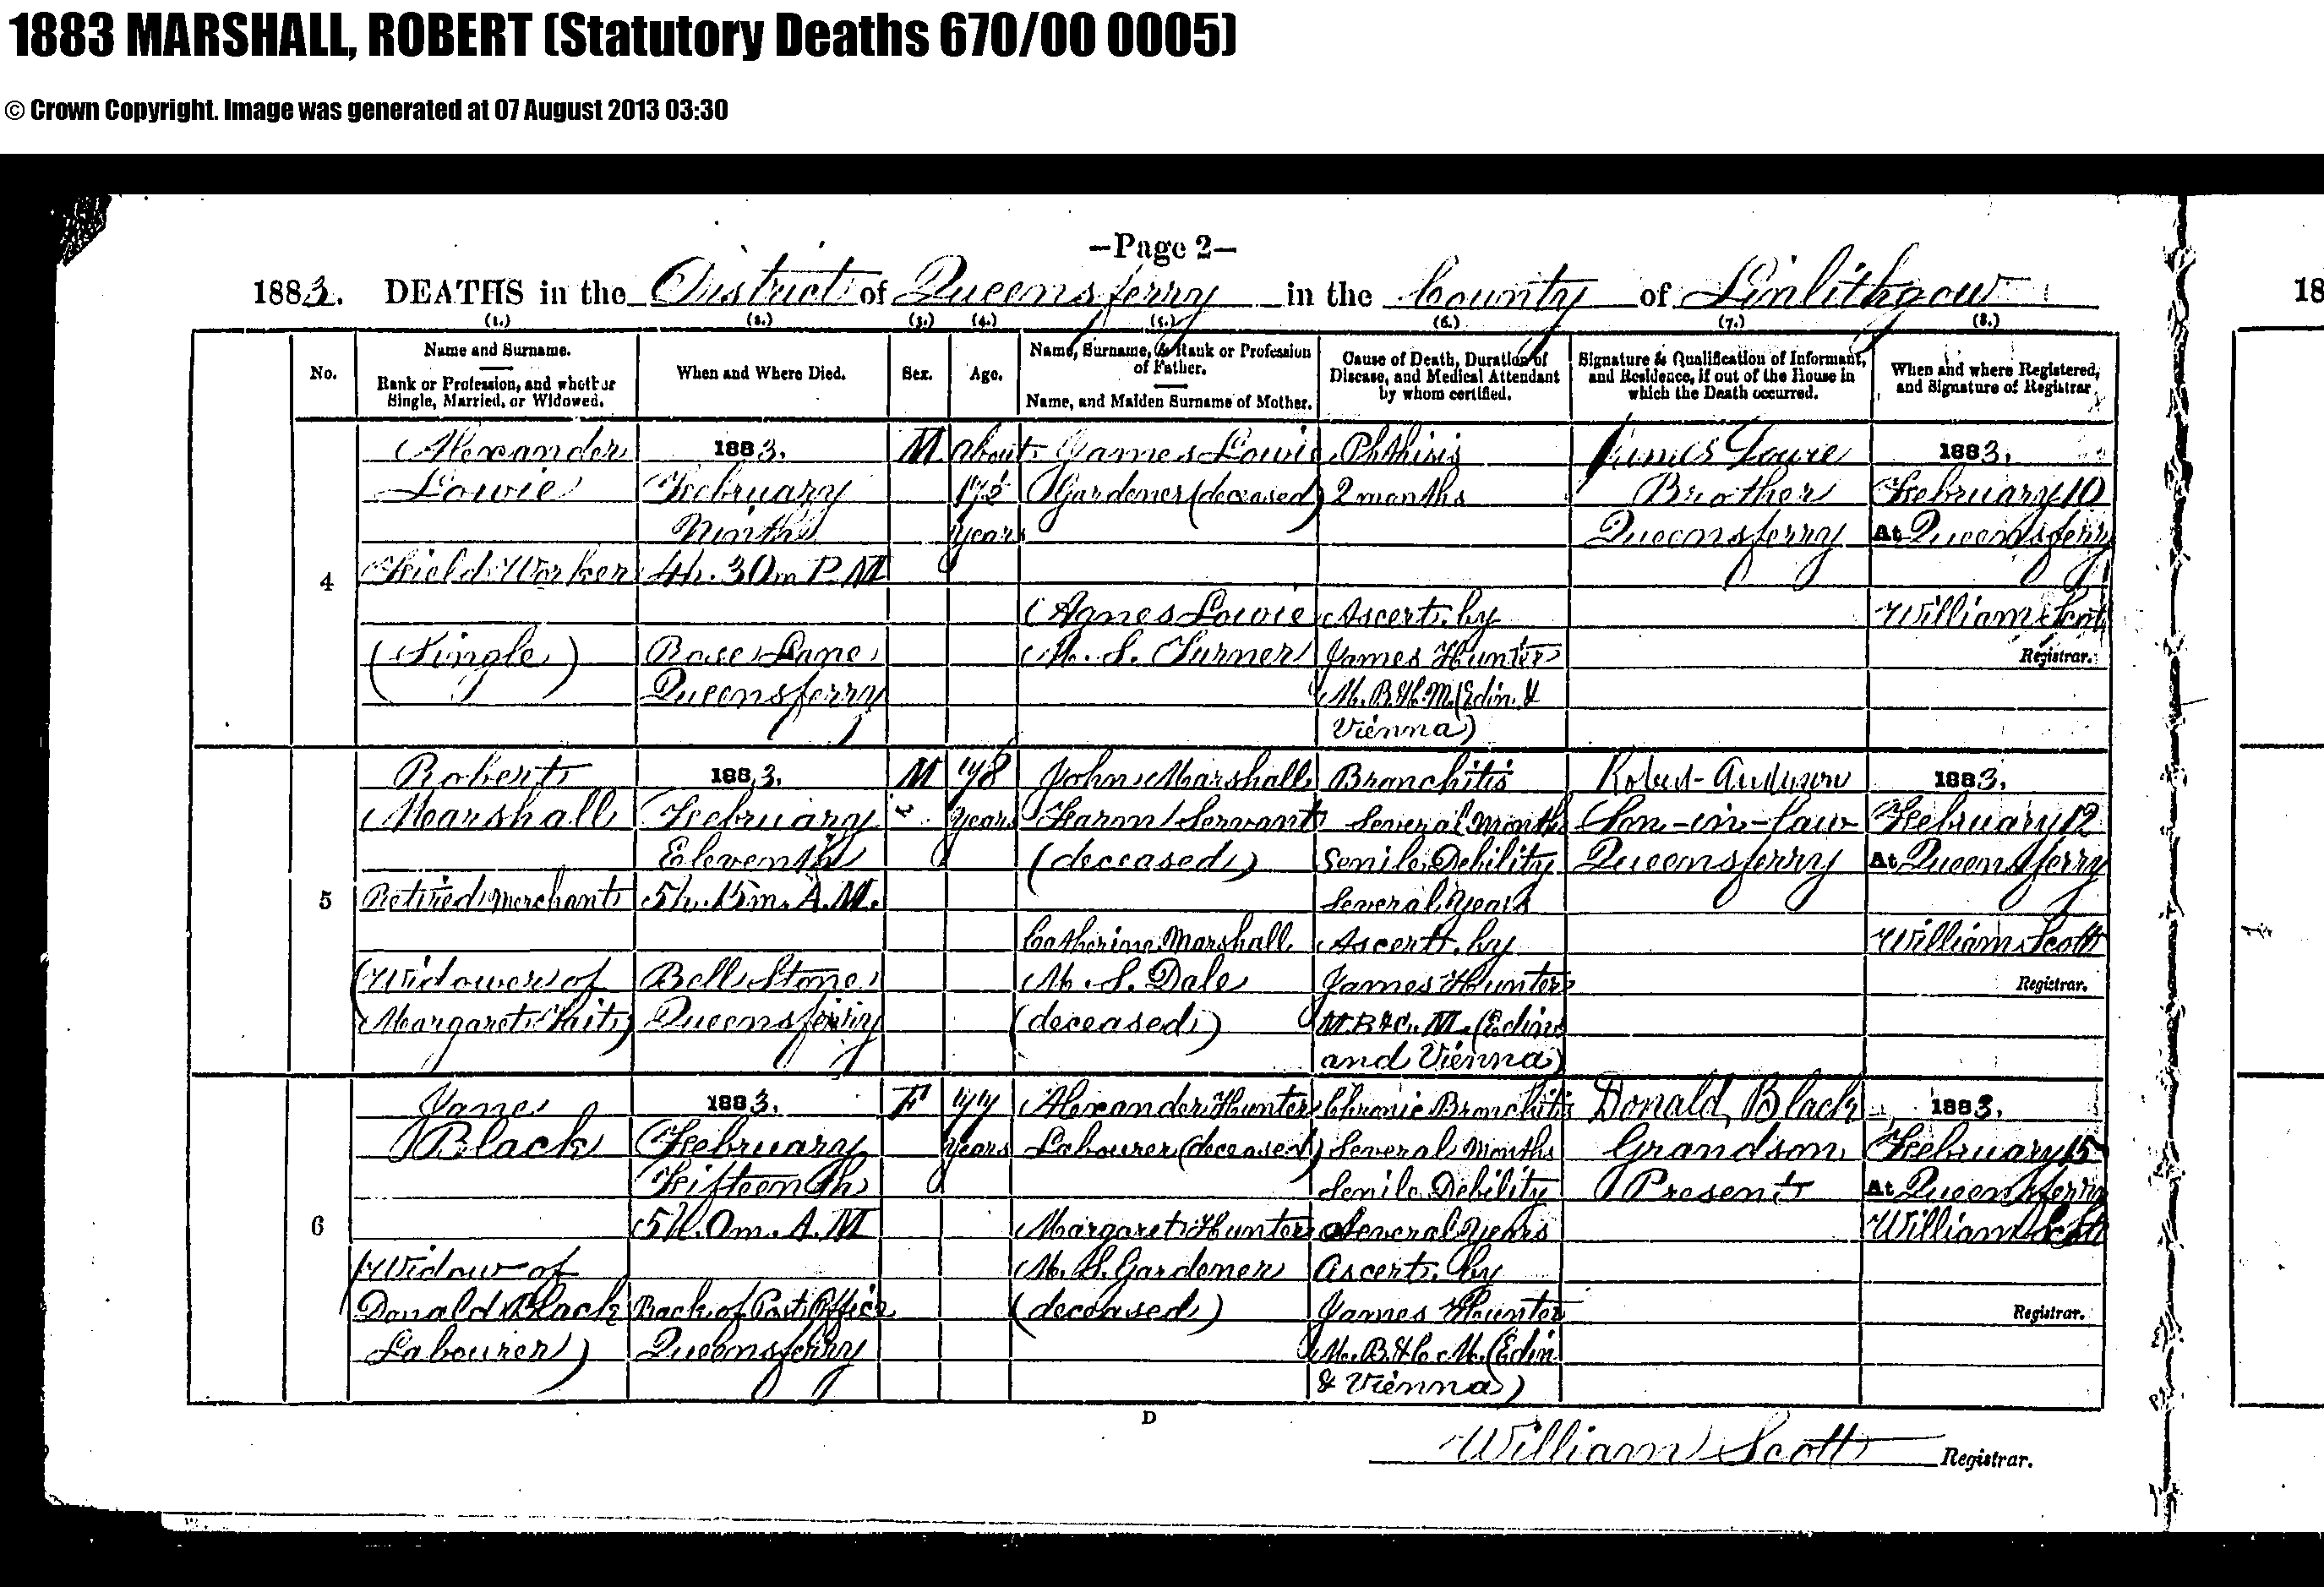 1883 MARSHALL, ROBERT (Statutory Deaths 670/00 0005)
© Crown Copyright. Image was generated at 07 August 2013 03:30
—Page 2—
1883. DEATHS in the District of Queensferry in the County of Linlithgow
18
(1.) (2.) (3.) (4.) (5.) (6.) (7.) (8.)
No.
Name and Surname.
Rank or Profession, and whether
Single, Married, or Widowed.
When and Where Died.
Sex.
Age.
Name, Surname, & Rank or Profession
of Father.
Name, and Maiden Surname of Mother.
Cause of Death, Duration of
Disease, and Medical Attendant
by whom certified.
Signature & Qualification of Informant,
and Residence, if out of the House in
which the Death occurred.
When and where Registered,
and Signature of Registrar.
4
Alexander
Lowie
Field Worker
(Single)
1883.
February
Ninth
4h. 30m P.M
Rose Lane
Queensferry
M
about
years
James Lowie
Gardener (deceased)
Agnes Lowie
M. S. Turner
Phthisis
2 months
Ascert. by
James Hunter
M.B. & C.M. (Edin. &
Vienna)
James Lowie
Brother
Queensferry
1883.
February 10
At Queensferry
William Scott
Registrar.
5
Robert
Marshall
Retired Merchant
(Widower of
Margaret Tait)
1883.
February
Eleventh
5h. 15m. A.M.
Bell Stone
Queensferry
M
78
years
John Marshall
Farm Servant
(deceased)
Catherine Marshall
M. S. Dale
(deceased)
Bronchitis
Several Months
Senile Debility
Several Years
Ascert. by
James Hunter
M.B & C. M. (Edin
and Vienna)
Robert Anderson
Son-in-law
Queensferry
1883.
February 12
At Queensferry
William Scott
Registrar.
6
Jane
Black
(Widow of
Donald Black
Labourer)
1883.
February
Fifteenth
5h. 0m. A.M
Back of Post Office
Queensferry
F
77
years
Alexander Hunter
Labourer (deceased)
Margaret Hunter
M. S. Gardener
(deceased)
Chronic Bronchitis
Several Months
Senile Debility
Several Years
Ascert. by
James Hunter
M. B. & C. M. (Edin
& Vienna)
Donald Black
Grandson
Present
1883.
February 15
At Queensferry
William Scott
Registrar.
D
William Scott Registrar.